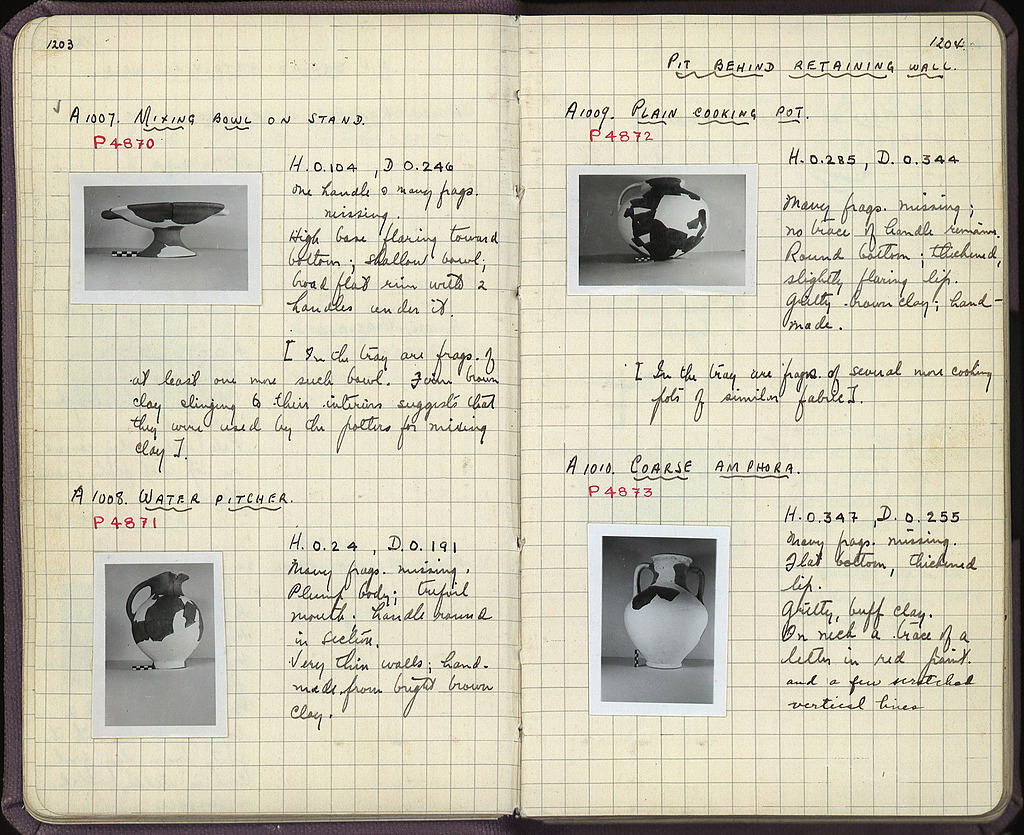 1203
A 1007. MIXING BOWL ON STAND.
P4870
H. 0.104, D 0.246
One handle & many frags.
missing.
High base flaring toward
bottom; shallow bowl;
broad flat rim with 2
handles under it.
[ In the tray are frags. of
at least one more such bowl. Firm brown
clay clinging to their interiors suggests that
they were used by the potters for mixing
clay ].
A 1008. WATER PITCHER.
P4871
H. 0.24, D. 0.191
Many frags. missing.
Plump body; trefoil
mouth. handle round
in section.
Very thin walls; hand-
made from bright brown
clay.
1204
PIT BEHIND RETAINING WALL.
A1009. PLAIN COOKING POT.
P4872
H. 0.285, D. 0.344
Many frags. missing;
no trace of handle remains.
Round bottom; thickened,
slightly flaring lip.
Gritty brown clay; hand-
made.
[ In the tray are frags. of several more cooking
pots of similar fabric ].
A 1010. COARSE AMPHORA.
P4873
H. 0.347, D. 0.255
Many frags. missing.
Flat bottom, thickened
lip.
Gritty, buff clay.
On neck a trace of a
letter in red paint.
and a few scratched
vertical lines